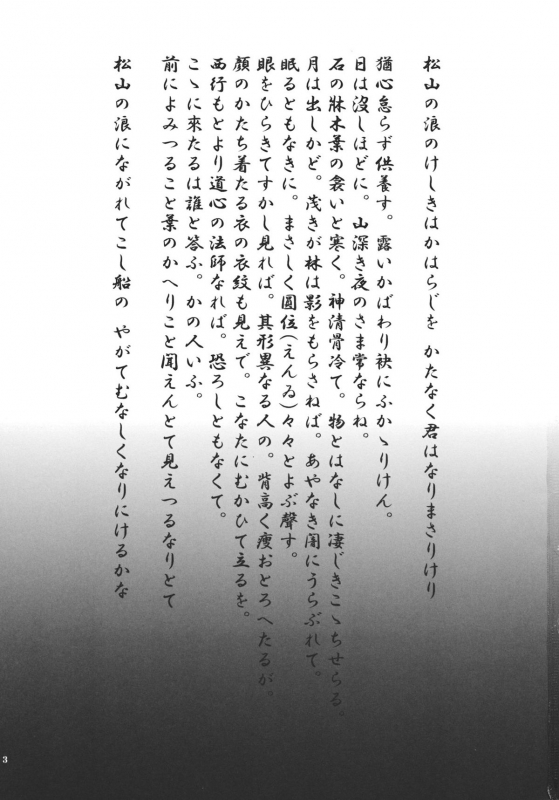 松山の浪のけしきはかはらじを　かたなく君はなりまさりけり
猶心怠らず供養す。露いかばわり袂にふかゝりけん。
日は沒しほどに。山深き夜のさま常ならね。
石の牀木葉の衾いと寒く。神清骨冷て。物とはなしに凄じきこゝちせらる。
月は出しかど。茂きが林は影をもらさねば。あやなき闇にうらぶれて。
眠るともなきに。まさしく圓位(えんゐ)々々とよぶ聲す。
眼をひらきてすかし見れば。其形異なる人の。背高く瘦おとろへたるが。
顏のかたち着たる衣の衣紋も見えで。こなたにむかひて立るを。
西行もとより道心の法師なれば。恐ろしともなくて。
こゝに來たるは誰と答ふ。かの人いふ。
前によみつること葉のかへりこと聞えんとて見えつるなりとて
松山の浪にながれてこし船の　やがてむなしくなりにけるかな
3